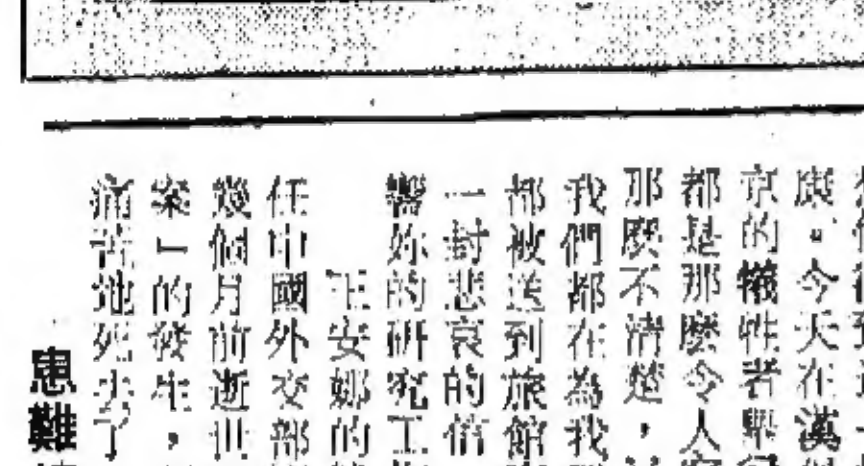 庚。今天在漢
京的犧牲者舉行
都是那麼令人
那麼不清楚，
我們都在為我
都被送到旅館
一封悲哀的信
響妳的研究工
王安娜的
任中國外交部
幾個月前逝世
案」的發生，
痛苦地死去了
患難